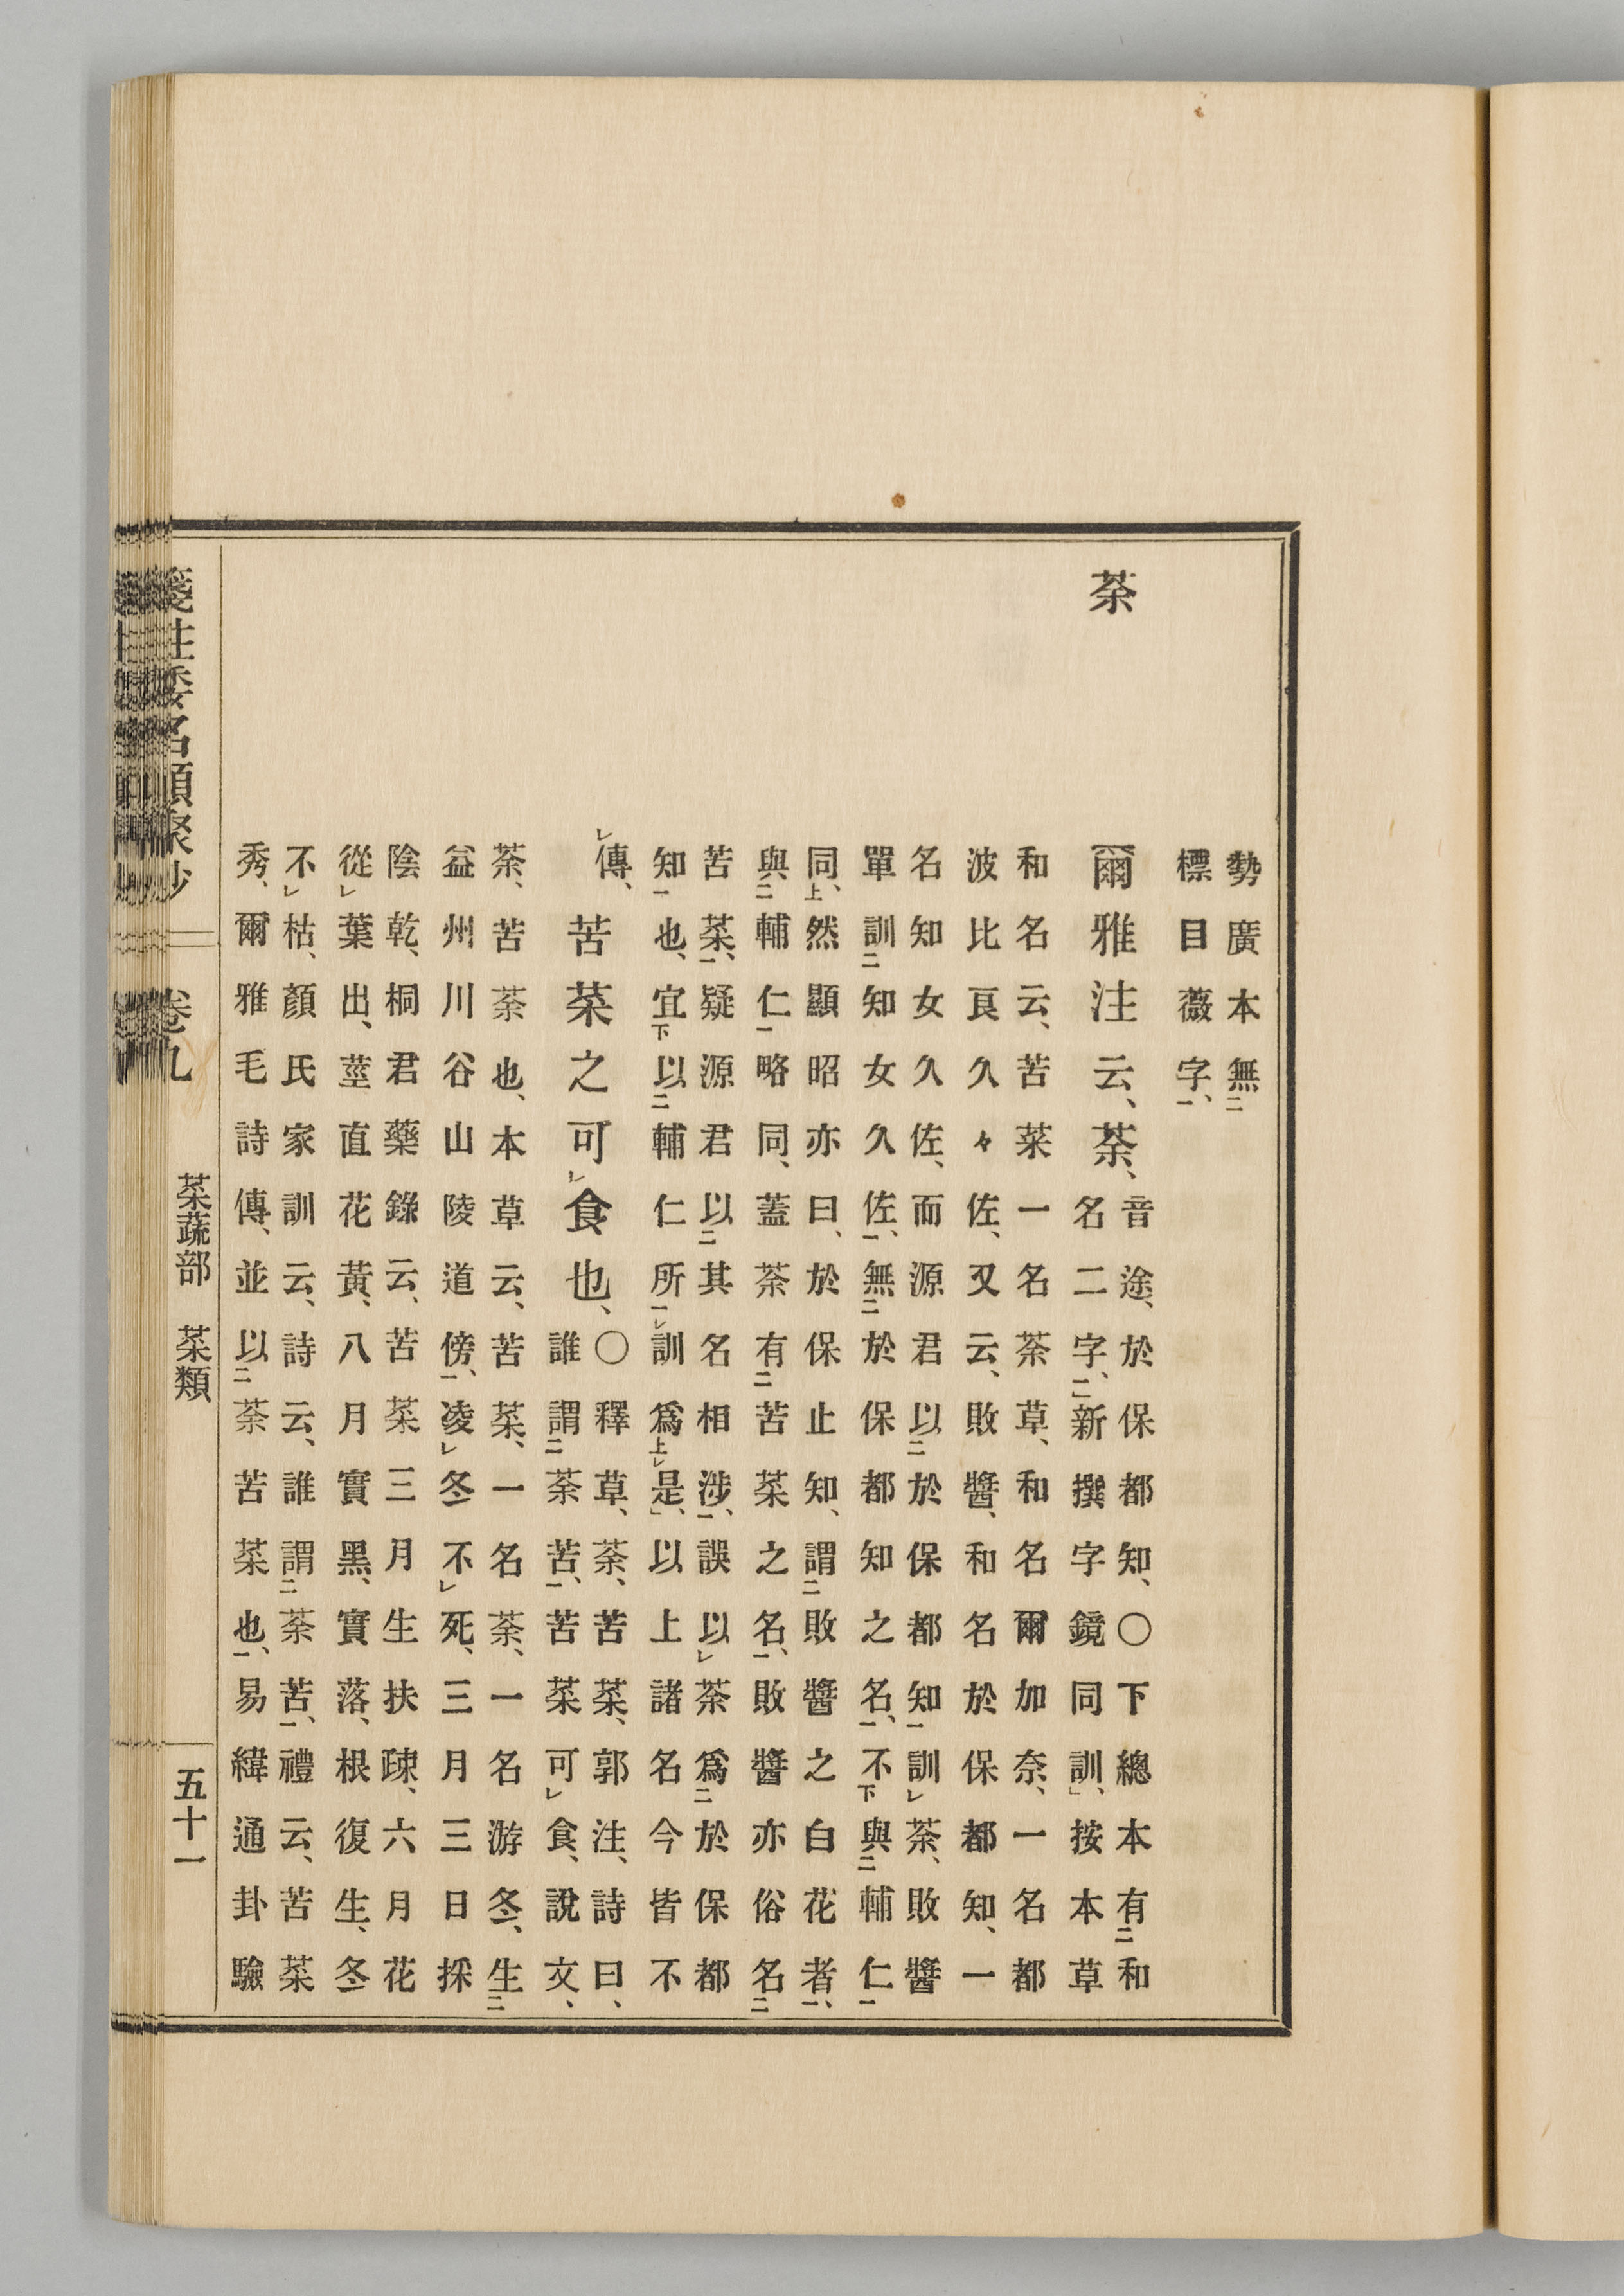 勢廣本無二
標目薇字、一
荼
爾雅注云、荼、
音途、於保都知、〇下總本有二和
名二字、一新撰字鏡同訓、按本草
和名云、苦菜一名荼草、和名爾加奈、一名都
波比良久々佐、又云、敗醬、和名於保都知、一
名知女久佐、而源君以二於保都知一訓レ荼、敗醬
單訓二知女久佐、一無二於保都知之名、一不下與二輔仁一
同、上然顯昭亦曰、於保止知、謂二敗醬之白花者、一
與二輔仁一略同、蓋荼有二苦菜之名、一敗醬亦俗名二
苦菜、一疑源君以二其名相涉、一誤以レ荼爲二於保都
知一也、宜下以二輔仁所一レ訓爲上レ是、以上諸名今皆不
レ傳、
苦菜之可レ食也、
〇釋草、荼、苦菜、郭注、詩曰、
誰謂二荼苦、一苦菜可レ食、說文、
荼、苦荼也、本草云、苦菜、一名荼、一名游冬、生二
益州川谷山陵道傍、一凌レ冬不レ死、三月三日採
陰乾、桐君藥錄云、苦菜三月生扶疎、六月花
從レ葉出、莖直花黃、八月實黑、實落、根復生、冬
不レ枯、顏氏家訓云、詩云、誰謂二荼苦、一禮云、苦菜
秀、爾雅毛詩傳、並以二荼苦菜也、一易緯通卦驗
箋注倭名類聚抄 卷九 菜蔬部 菜類 五十一